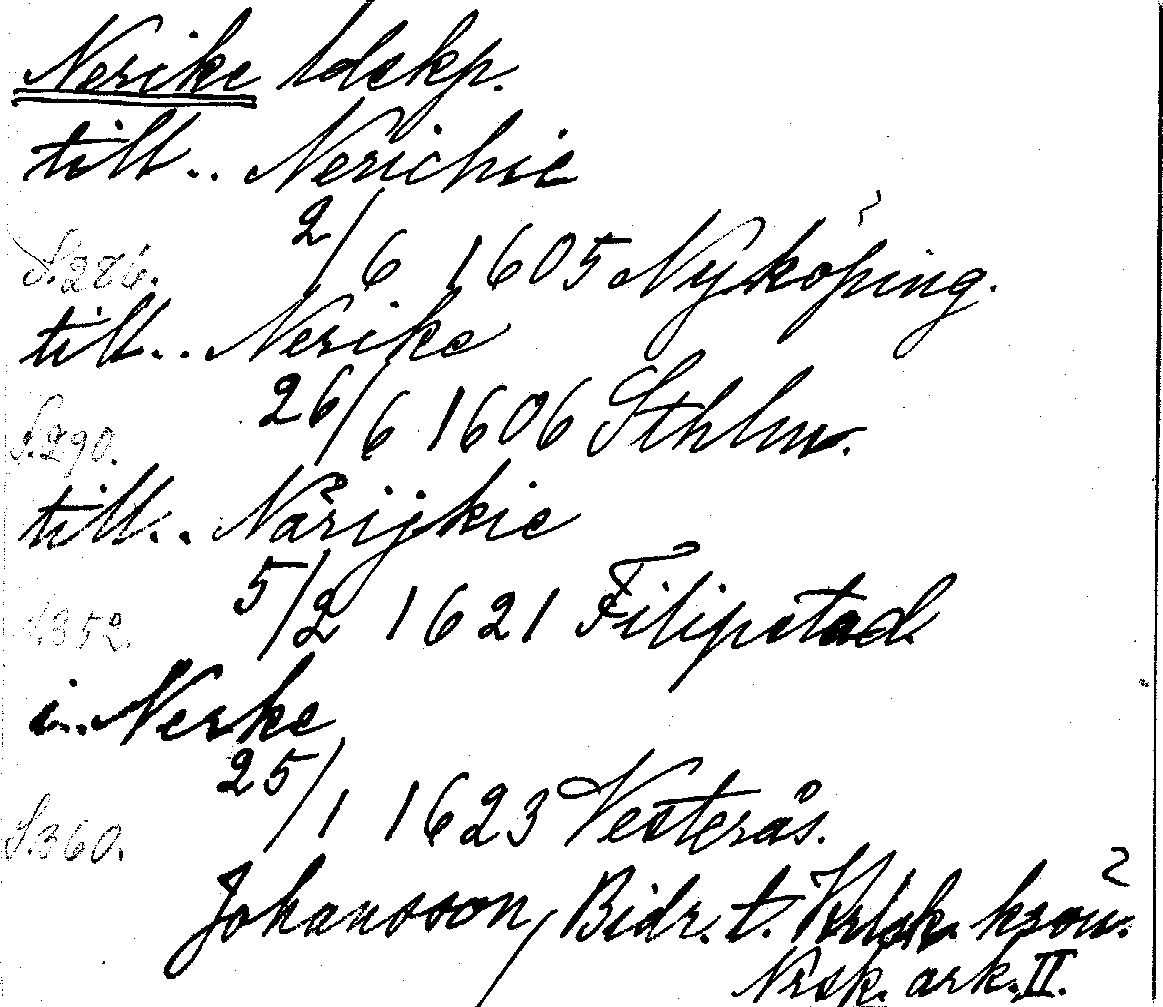 Nerike ldskp.
till.. Nerichie
S.286. 2/6 1605 Nyköping.
till... Nerike
S.290. 26/6 1606 Sthlm.
till.. Närijkie
S.352. 5/2 1621 Filipstad
i... Nerke
S.360. 25/1 1623 Vesterås.
Johansson, Bidr. t. kron.
Nrsk. ark. II.